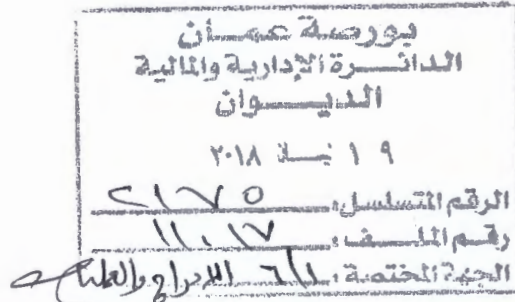 بورصة عمان
الدائرة الإدارية والمالية
الديوان
١٩ نيسان ٢٠١٨
الرقم المتسلسل: ٢١٧٥
رقم الملف:
الجهة المختصة: الإدراج والعمليات